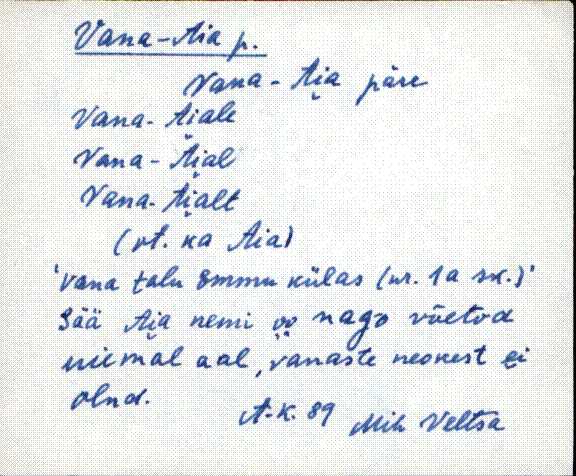 Vana-Aia p.
Vana-Ai̯a päre
Vana-Ai̯ale
Vana-Ai̯al
Vana-Ai̯alt
(vt. ka Aia)
'vana talu Emmu külas (nr. 1a sk.)'
Sää Ai̯a nemi oo nago võetod
niemäl aal, vanaste neokest ei
olnd.
A.K. 89 Mih Veltsa